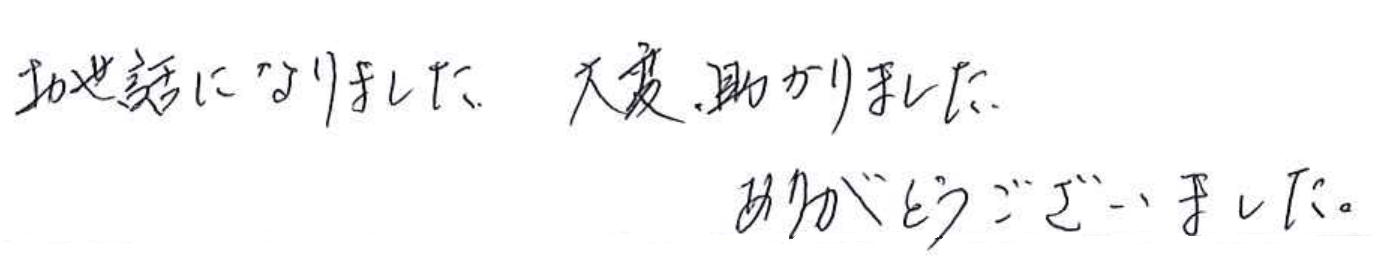 お世話になりました 大変助かりました
ありがとうございました。